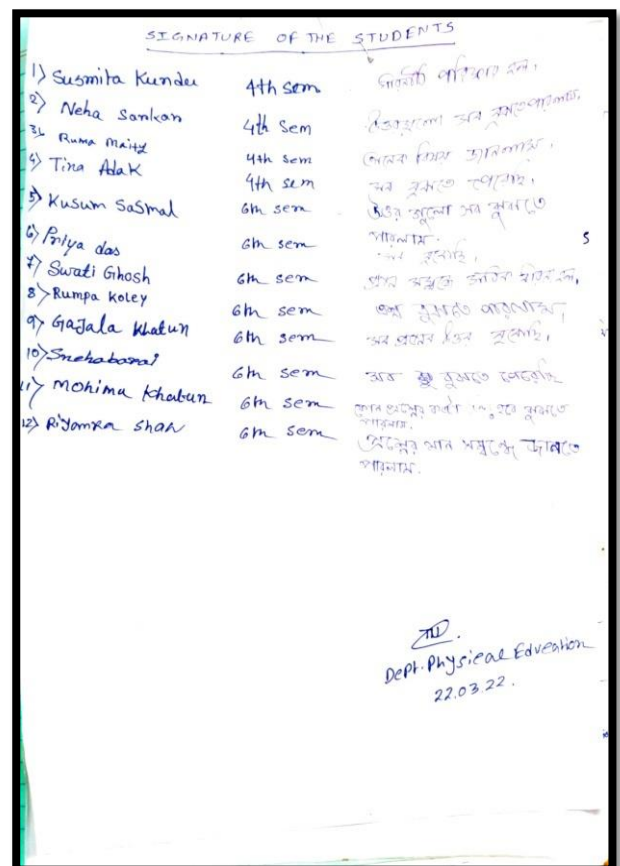 SIGNATURE OF THE STUDENTS
1) Susmita Kundu 4th Sem ধারণাটি পরিষ্কার হল।
2) Neha Sankar 4th Sem উত্তরগুলো সব বুঝতে পারলাম.
3) Ruma Maity 4th sem অনেক বিষয় জানলাম।
4) Tina Adak 4th sem সব বুঝতে পেরেছি.
5) Kusum Sasmal 6th sem উত্তর গুলো সব বুঝতে
পারলাম.
6) Priya das 6th sem সব বুঝেছি.
7) Swati Ghosh 6th sem প্রশ্ন সম্বন্ধে সঠিক ধারনা হল.
8) Rumpa Koley 6th sem বুঝতে পারলাম,
9) Gajala Khatun 6th sem সব প্রশ্নের উত্তর বুঝেছি,
10) Snehabarai 6th sem সব বুঝতে পেরেছি
11) Mohima Khatun 6th Sem কোন প্রশ্নের কতটা হবে বুঝতে
পারলাম.
12) Riyamka Shah 6th Sem প্রশ্নের মান সম্বন্ধে জানতে
পারলাম.
5
Dept. Physical Education
22.03.22.